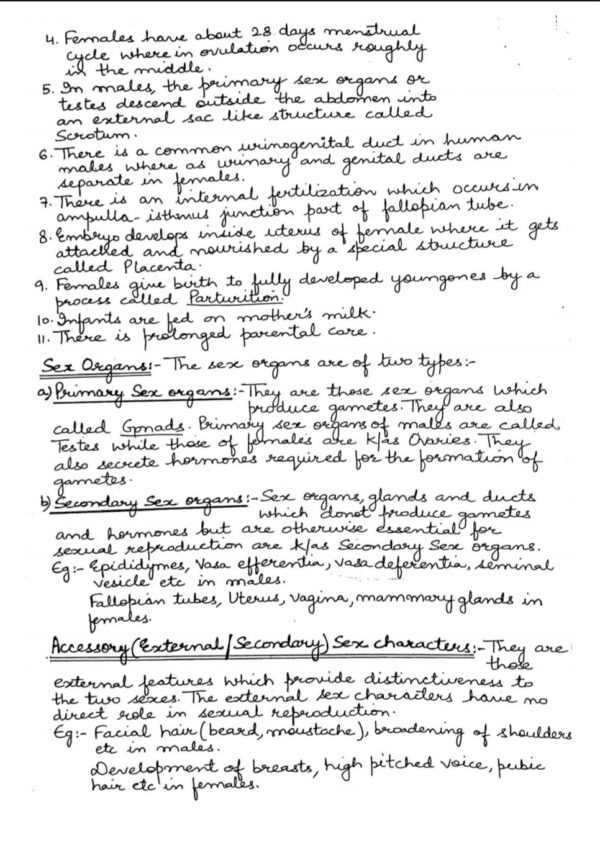 4. Females have about 28 days menstrual
cycle where in ovulation occurs roughly
in the middle.
5. In males, the primary sex organs or
testes descend outside the abdomen into
an external sac like structure called
Scrotum.
6. There is a common urinogenital duct in human
males where as urinary and genital ducts are
separate in females.
7. There is an internal fertilization which occurs in
ampulla-isthmus junction part of fallopian tube.
8. Embryo develops inside uterus of female where it gets
attached and nourished by a special structure
called Placenta.
9. Females give birth to fully developed youngones by a
process called Parturition.
10. Infants are fed on mother's milk.
11. There is prolonged parental care.
Sex Organs:- The sex organs are of two types:-
a) Primary Sex organs:- They are those sex organs which
produce gametes. They are also
called Gonads. Primary sex organs of males are called
Testes while those of females are k/as Ovaries. They
also secrete hormones required for the formation of
gametes.
b) Secondary Sex organs:- Sex organs, glands and ducts
which donot produce gametes
and hormones but are otherwise essential for
sexual reproduction are k/as Secondary Sex organs.
Eg:- Epididymes, Vasa efferentia, vasa deferentia, seminal
vesicle etc in males.
Fallopian tubes, Uterus, vagina, mammary glands in
females.
Accessory (External/Secondary) Sex characters:- They are
those
external features which provide distinctiveness to
the two sexes. The external sex characters have no
direct role in sexual reproduction.
Eg:- Facial hair (beard, moustache), broadening of shoulders
etc in males.
Development of breasts, high pitched voice, pubic
hair etc in females.